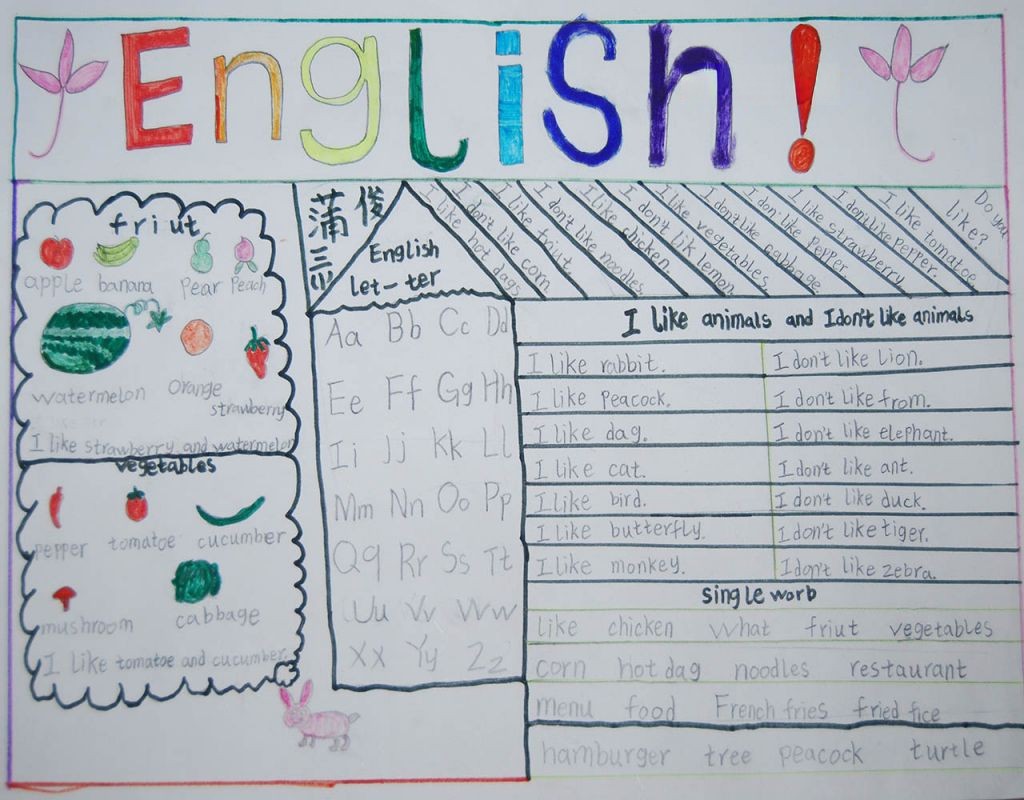 English!
friut
apple banana Pear Peach
watermelon Orange
strawberry
I like strawberry and watermelon
vegetables
pepper tomatoe cucumber
mushroom cabbage
I like tomatoe and cucumber.
蒲俊
三
English
Let-ter
Aa Bb Cc Dd
Ee Ff Gg Hh
Ii Jj Kk Ll
Mm Nn Oo Pp
Qq Rr Ss Tt
Uu Vv Ww
Xx Yy Zz
I like hot dags
I don't like corn
I like friut.
I don't like noodles
I like chicken.
I don't lik lemon.
I like vegetables.
I don't like cabbage.
I don't like Pepper.
I like strawberry.
I don't like perper.
I like tomatoe
Do you
like?
I like animals and I don't like animals
I like rabbit. I don't like Lion.
I like Peacock. I don't like from.
I like dag. I don't like elephant.
I like cat. I don't like ant.
I like bird. I don't like duck.
I like butterfly. I don't like tiger.
I like monkey. I don't like zebra.
single worb
like chicken what friut vegetables
corn hot dag noodles restaurant
menu food French fries fried fice
hamburger tree peacock turtle